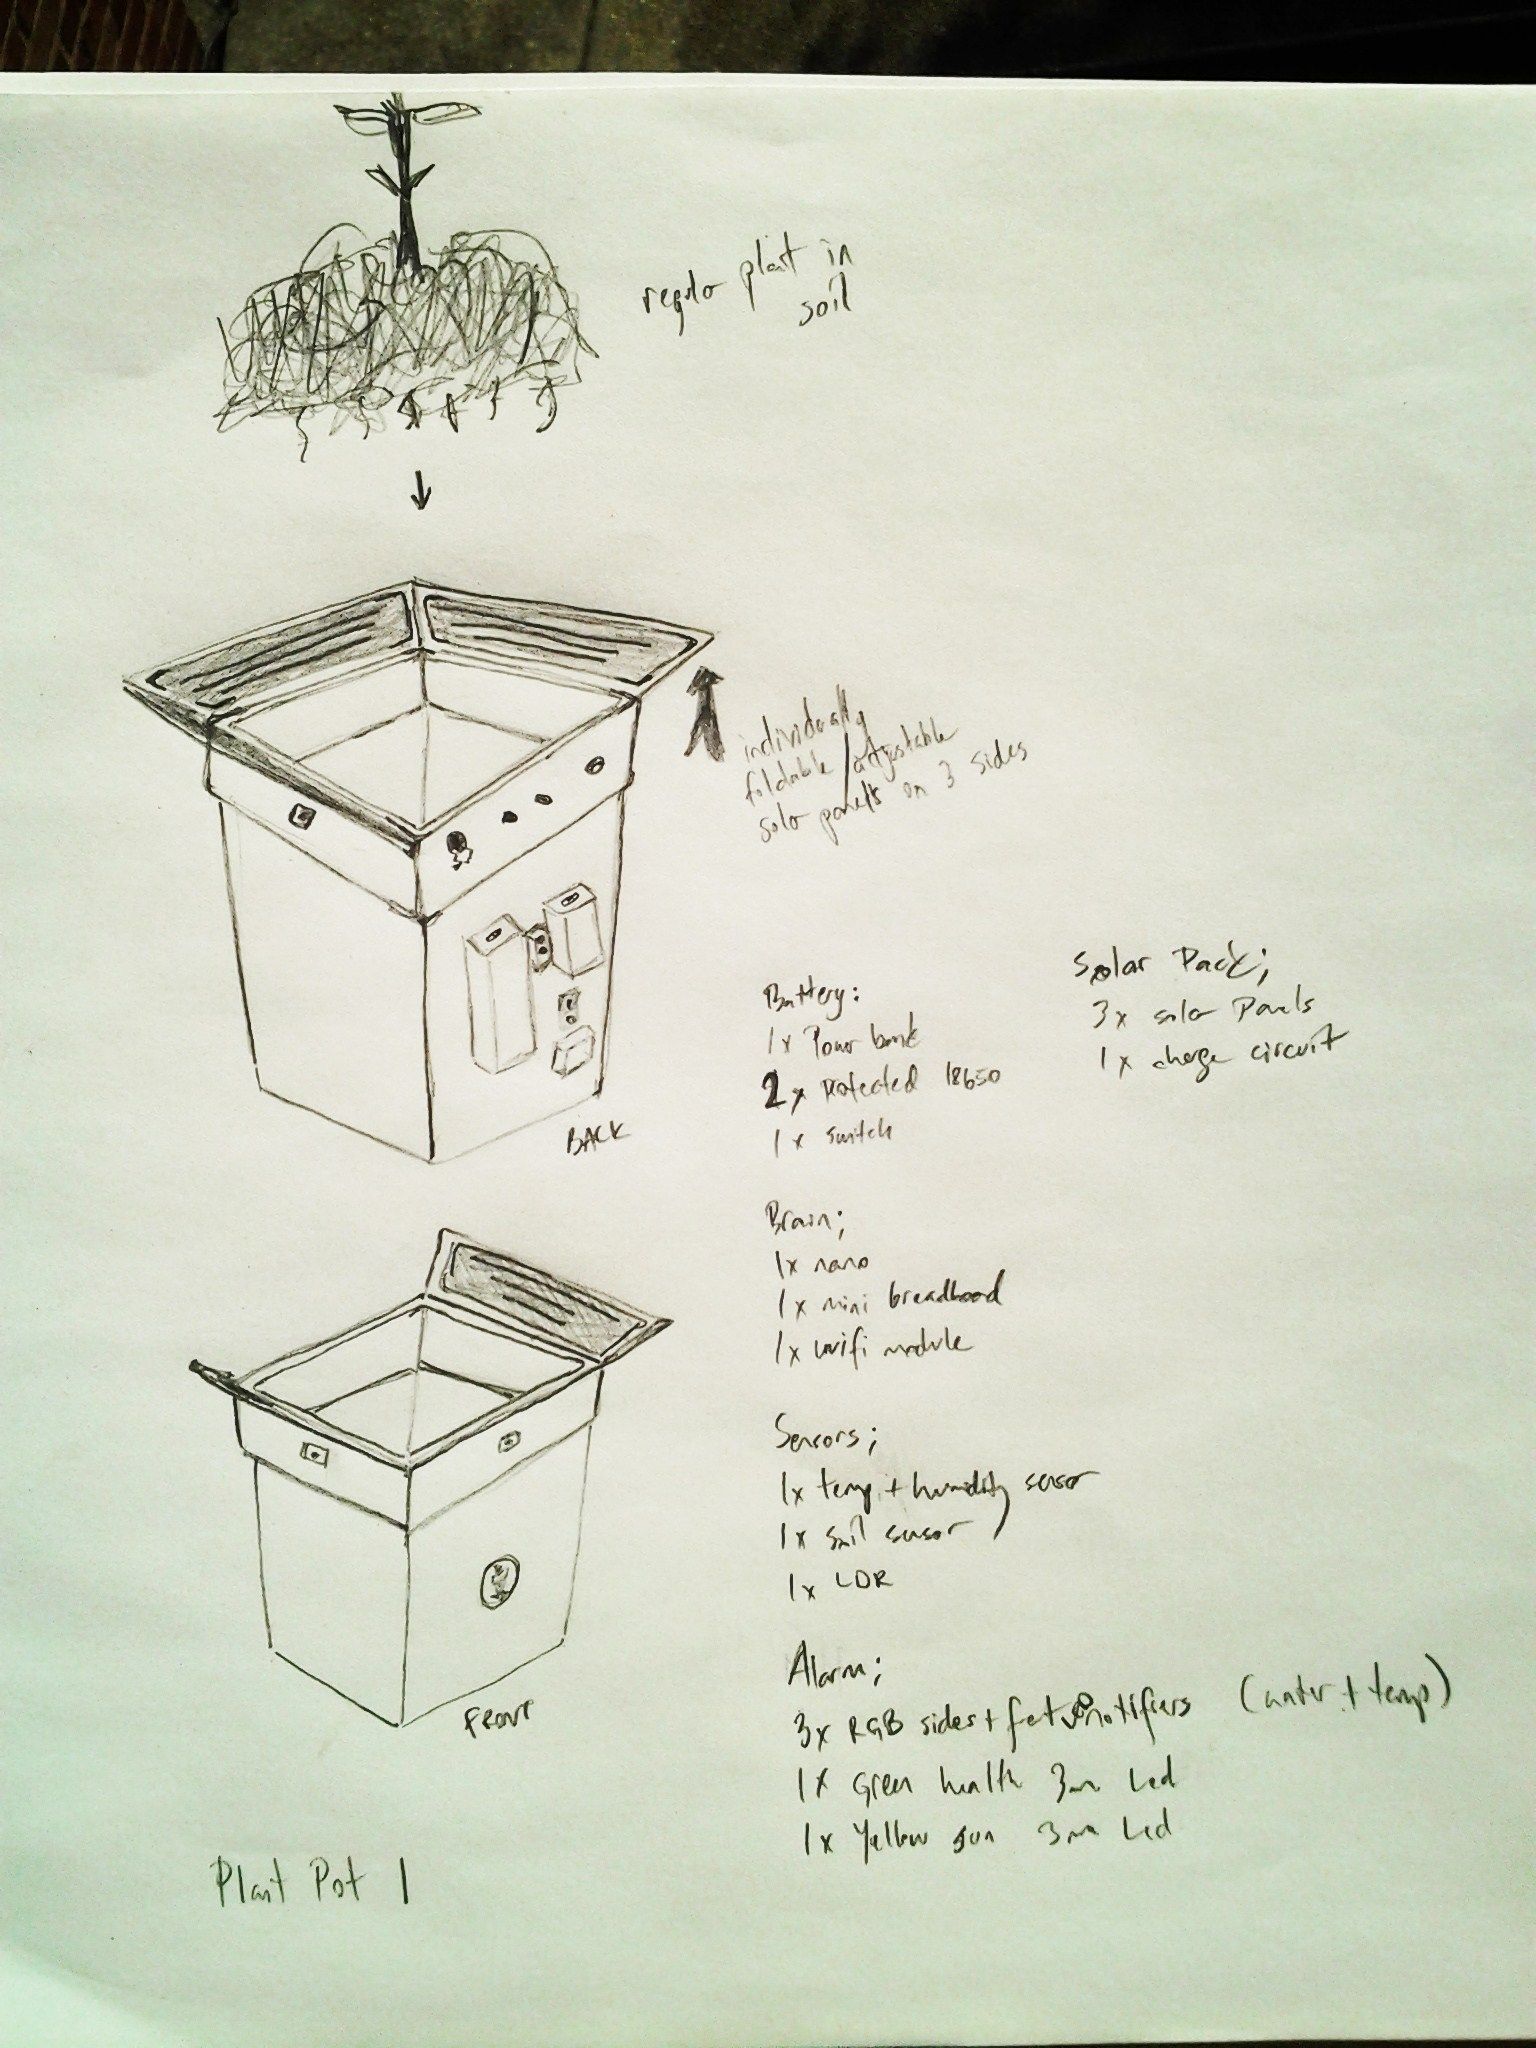 regular plant in
soil
individually
foldable/adjustable
solar panels on 3 sides
Solar Pack;
3x solar Panels
1x charge circuit
Battery:
1x Power bank
2x Protected 18650
1x switch
BACK
Brain;
1x nano
1x mini breadboard
1x wifi module
Sensors;
1x temp + humidity sensor
1x soil sensor
1x LDR
FRONT
Alarm;
3x RGB sides + notifiers (water + temp)
1x Green health 3mm Led
1x Yellow sun 3mm Led
Plant Pot 1